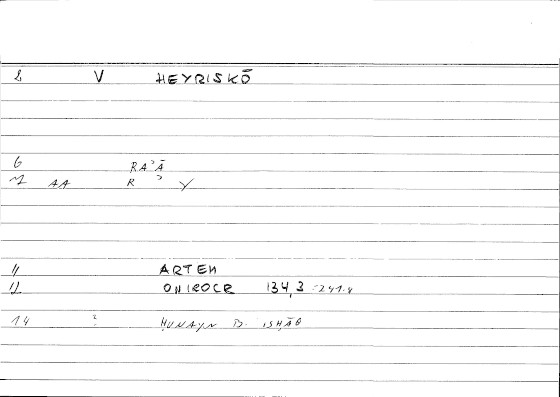 2 V HEYRISKŌ
6 RAʾĀ
7 AA R ʾ Y
11 ARTEM
12 ONIROCR 134,3 = 241.4
14 ? ḤUNAYN B. ISḤĀQ